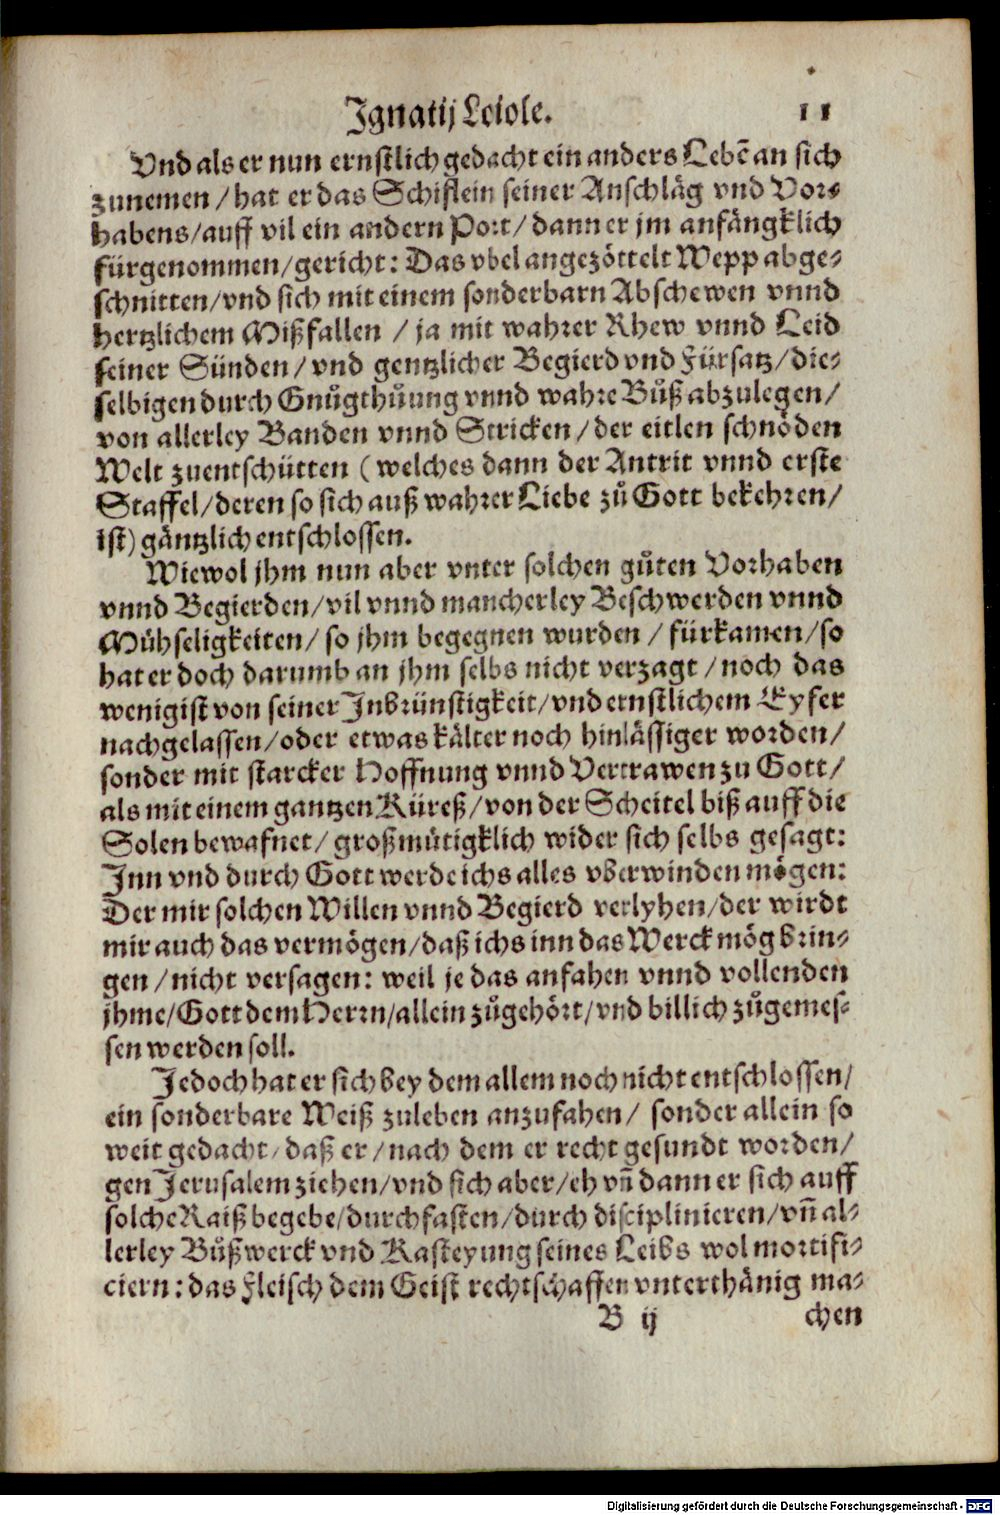 Ignatij Loiole. 11
Vnd als er nun ernstlich gedacht ein anders Lebē an sich
zunemen / hat er das Schiflein seiner Anschläg vnd Vor-
habens / auff vil ein andern Port / dann er jm anfängklich
fürgenommen / gericht: Das vbel angezöttelt Wepp abge-
schnitten / vnd sich mit einem sonderbarn Abschewen vnnd
hertzlichem Mißfallen / ja mit wahrer Rhew vnnd Leid
seiner Sünden / vnd gentzlicher Begierd vnd Fürsatz / die-
selbigen durch Gnůgthůung vnnd wahre Bůß abzulegen /
von allerley Banden vnnd Stricken / der eitlen schnöden
Welt zuentschütten (welches dann der Antrit vnnd erste
Staffel / deren so sich auß wahrer Liebe zů Gott bekehren /
ist) gäntzlich entschlossen.
Wiewol jhm nun aber vnter solchen gůten Vorhaben
vnnd Begierden / vil vnnd mancherley Beschwerden vnnd
Mühseligkeiten / so jhm begegnen wurden / fürkamen / so
hat er doch darumb an jhm selbs nicht verzagt / noch das
wenigist von seiner Inbrünstigkeit / vnd ernstlichem Eyfer
nachgelassen / oder etwas kälter noch hinlässiger worden /
sonder mit starcker Hoffnung vnnd Vertrawen zu Gott /
als mit einem gantzen Küreß / von der Scheitel biß auff die
Solen bewafnet / großmütigklich wider sich selbs gesagt:
Inn vnd durch Gott werde ichs alles vberwinden mögen:
Der mir solchen Willen vnnd Begierd verlyhen / der wirdt
mir auch das vermögen / daß ichs inn das Werck mög brin-
gen / nicht versagen: weil je das anfahen vnnd vollenden
jhme / Gott dem Herrn / allein zůgehört / vnd billich zůgemes-
sen werden soll.
Jedoch hat er sich bey dem allem noch nicht entschlossen /
ein sonderbare Weiß zuleben anzufahen / sonder allein so
weit gedacht / daß er / nach dem er recht gesundt worden /
gen Jerusalem ziehen / vnd sich aber / eh vñ dann er sich auff
solche Raiß begebe / durch fasten / durch disciplinieren / vñ al-
lerley Bůßwerck vnd Kasteyung seines Leibs wol mortifi-
ciern: das Fleisch dem Geist rechtschaffen vnterthänig ma-
B ij chen
Digitalisierung gefördert durch die Deutsche Forschungsgemeinschaft - DFG